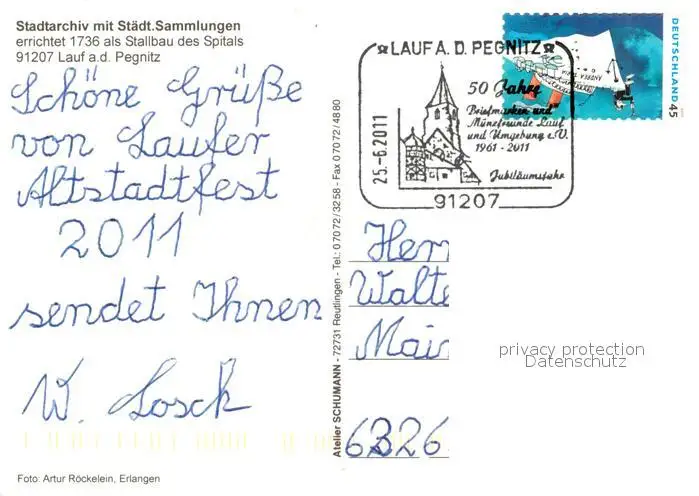 Stadtarchiv mit Städt.Sammlungen
errichtet 1736 als Stallbau des Spitals
91207 Lauf a.d. Pegnitz
Schöne Grüße
von Laufer
Altstadtfest
2011
sendet Ihnen
W. Losch
Foto: Artur Röckelein, Erlangen
Atelier SCHUMANN - 72731 Reutlingen - Tel.: 0 70 72 / 32 58 - Fax 0 70 72 / 48 80
LAUF A. D. PEGNITZ
50 Jahre
Briefmarken und
Münzfreunde Lauf
und Umgebung e.V.
1961 - 2011
Jubiläumsfahr
25.-6.2011
91207
DEUTSCHLAND 45
Herr
Walte
Mair
6326
privacy protection
Datenschutz